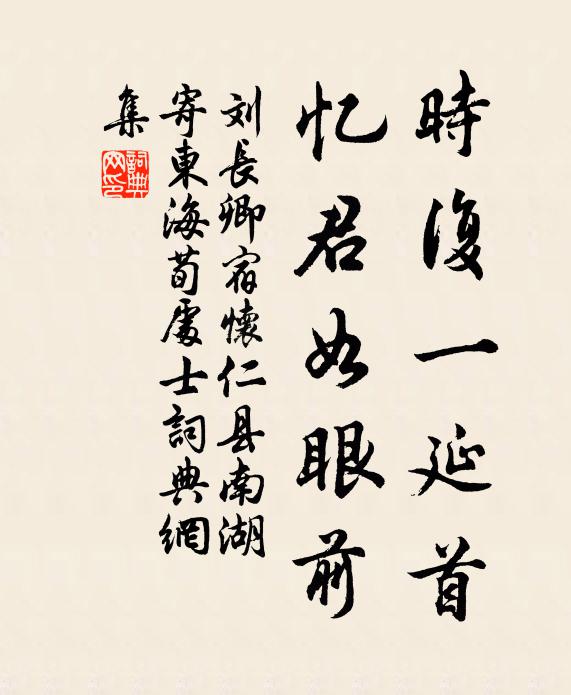 時復一延首
忆君如眼前
刘長卿宿懷仁县南湖
寄東海荀處士詞典網
集
詞典网印